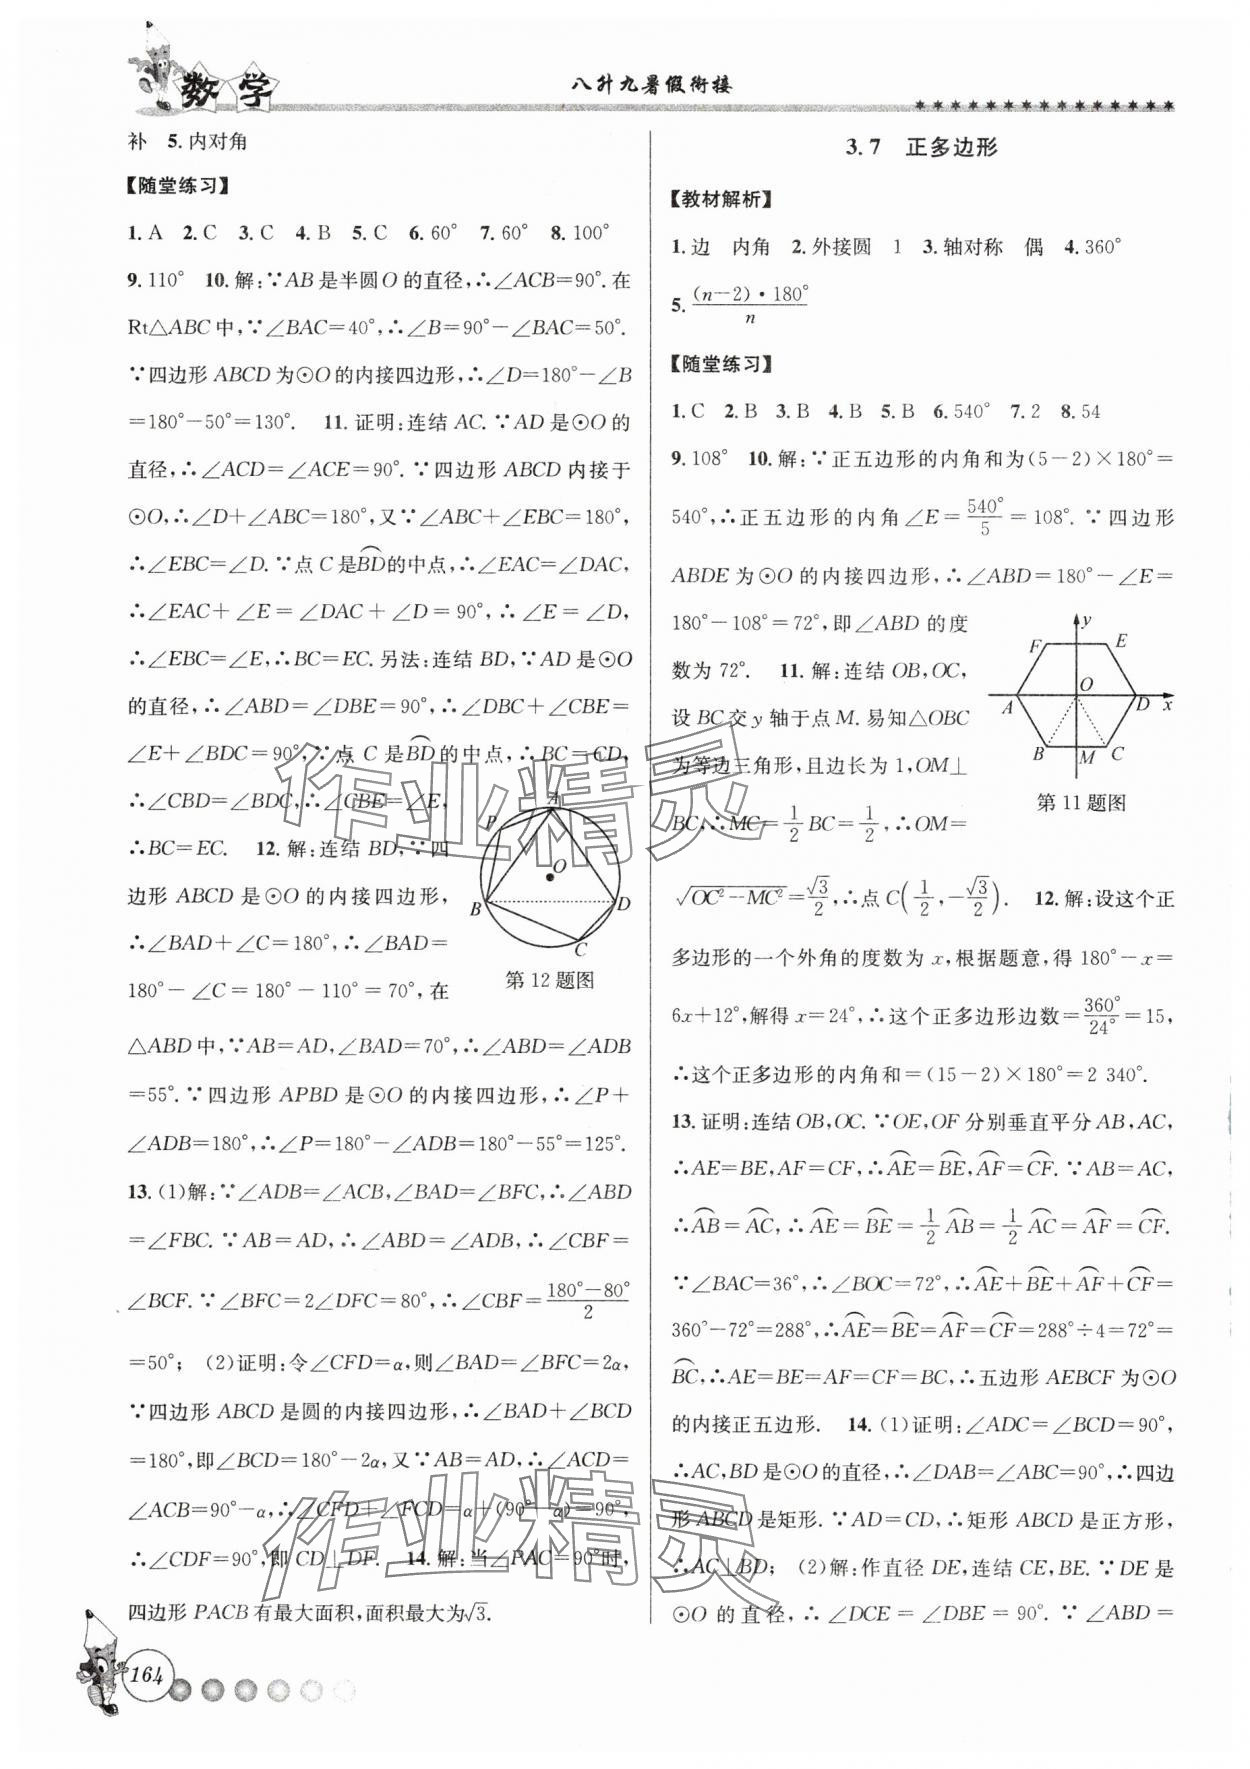 数学
八升九暑假衔接
补 5. 内对角
【随堂练习】
1. A 2. C 3. C 4. B 5. C 6. 60° 7. 60° 8. 100°
9. 110° 10. 解:∵AB是半圆O的直径,∴∠ACB=90°. 在
Rt△ABC中,∵∠BAC=40°,∴∠B=90°-∠BAC=50°.
∵四边形ABCD为⊙O的内接四边形,∴∠D=180°-∠B
=180°-50°=130°. 11. 证明:连结AC. ∵AD是⊙O的
直径,∴∠ACD=∠ACE=90°. ∵四边形ABCD内接于
⊙O,∴∠D+∠ABC=180°,又∵∠ABC+∠EBC=180°,
∴∠EBC=∠D. ∵点C是⌒BD的中点,∴∠EAC=∠DAC,
∴∠EAC+∠E=∠DAC+∠D=90°,∴∠E=∠D,
∴∠EBC=∠E,∴BC=EC. 另法:连结BD,∵AD是⊙O
的直径,∴∠ABD=∠DBE=90°,∴∠DBC+∠CBE=
∠E+∠BDC=90°,∵点C是⌒BD的中点,∴BC=CD,
∴∠CBD=∠BDC,∴∠CBE=∠E,
∴BC=EC. 12. 解:连结BD,∵四
边形ABCD是⊙O的内接四边形,
∴∠BAD+∠C=180°,∴∠BAD=
180°-∠C=180°-110°=70°,在
A
P
O
B
D
C
第12题图
△ABD中,∵AB=AD,∠BAD=70°,∴∠ABD=∠ADB
=55°. ∵四边形APBD是⊙O的内接四边形,∴∠P+
∠ADB=180°,∴∠P=180°-∠ADB=180°-55°=125°.
13. (1)解:∵∠ADB=∠ACB,∠BAD=∠BFC,∴∠ABD
=∠FBC. ∵AB=AD,∴∠ABD=∠ADB,∴∠CBF=
∠BCF. ∵∠BFC=2∠DFC=80°,∴∠CBF=(180°-80°)/2
=50°; (2)证明:令∠CFD=α,则∠BAD=∠BFC=2α,
∵四边形ABCD是圆的内接四边形,∴∠BAD+∠BCD
=180°,即∠BCD=180°-2α,又∵AB=AD,∴∠ACD=
∠ACB=90°-α,∴∠CFD+∠FCD=α+(90°-α)=90°,
∴∠CDF=90°,即CD⊥DF. 14. 解:当∠PAC=90°时,
四边形PACB有最大面积,面积最大为√3.
164
3.7 正多边形
【教材解析】
1. 边 内角 2. 外接圆 1 3. 轴对称 偶 4. 360°
5. (n-2)·180°/n
【随堂练习】
1. C 2. B 3. B 4. B 5. B 6. 540° 7. 2 8. 54
9. 108° 10. 解:∵正五边形的内角和为(5-2)×180°=
540°,∴正五边形的内角∠E=540°/5=108°. ∵四边形
ABDE为⊙O的内接四边形,∴∠ABD=180°-∠E=
180°-108°=72°,即∠ABD的度
数为72°. 11. 解:连结OB,OC,
设BC交y轴于点M. 易知△OBC
为等边三角形,且边长为1,OM⊥
BC,∴MC=1/2 BC=1/2,∴OM=
y
F
E
O
A
D
x
B
M
C
第11题图
√(OC²-MC²)=√3/2,∴点C(1/2,-√3/2). 12. 解:设这个正
多边形的一个外角的度数为x,根据题意,得180°-x=
6x+12°,解得x=24°,∴这个正多边形边数=360°/24°=15,
∴这个正多边形的内角和=(15-2)×180°=2 340°.
13. 证明:连结OB,OC. ∵OE,OF分别垂直平分AB,AC,
∴AE=BE,AF=CF,∴⌒AE=⌒BE,⌒AF=⌒CF. ∵AB=AC,
∴⌒AB=⌒AC,∴⌒AE=⌒BE=1/2 ⌒AB=1/2 ⌒AC=⌒AF=⌒CF.
∵∠BAC=36°,∴∠BOC=72°,∴⌒AE+⌒BE+⌒AF+⌒CF=
360°-72°=288°,∴⌒AE=⌒BE=⌒AF=⌒CF=288°÷4=72°=
⌒BC,∴AE=BE=AF=CF=BC,∴五边形AEBCF为⊙O
的内接正五边形. 14. (1)证明:∠ADC=∠BCD=90°,
∴AC,BD是⊙O的直径,∴∠DAB=∠ABC=90°,∴四边
形ABCD是矩形. ∵AD=CD,∴矩形ABCD是正方形,
∴AC⊥BD; (2)解:作直径DE,连结CE,BE. ∵DE是
⊙O的直径,∴∠DCE=∠DBE=90°. ∵∠ABD=
作业精灵
作业精灵